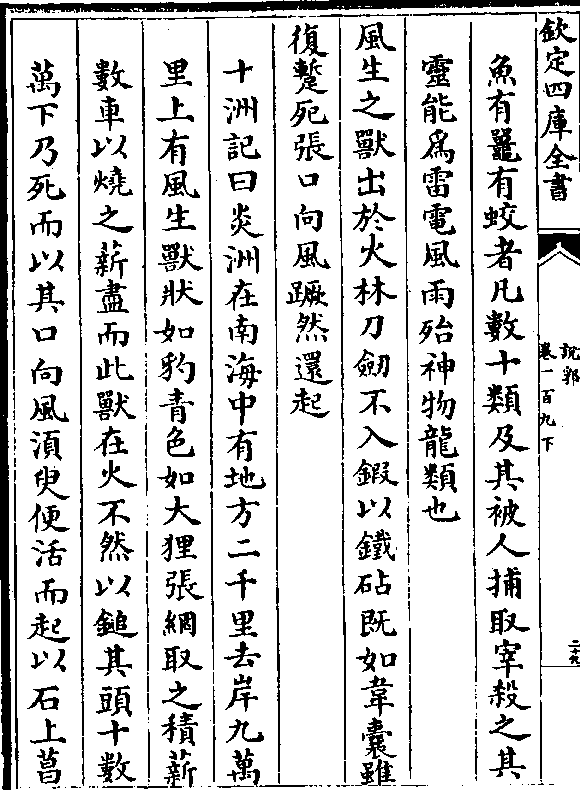 欽定四庫全書
説郛
卷一百九下
二十九
魚有鼉有蛟者凡數十類及其被人捕取宰殺之其
靈能為雷電風雨殆神物龍類也
風生之獸出於火林刀劒不入鍜以鐵砧既如韋囊雖
復蹔死張口向風蹶然還起
十洲記曰炎洲在南海中有地方二千里去岸九萬
里上有風生獸狀如豹青色如大狸張網取之積薪
數車以燒之薪盡而此獸在火不然以鎚其頭十數
萬下乃死而以其口向風湏臾便活而起以石上菖